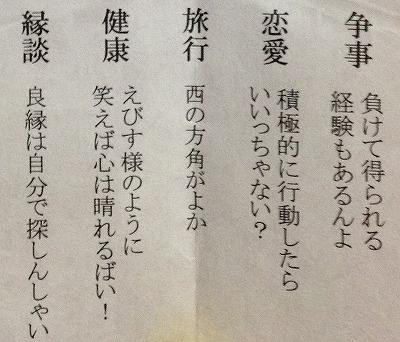 争事
負けて得られる
経験もあるんよ
恋愛
積極的に行動したら
いいっちゃない？
旅行
西の方角がよか
健康
えびす様のように
笑えば心は晴れるばい！
縁談
良縁は自分で探しんしゃい